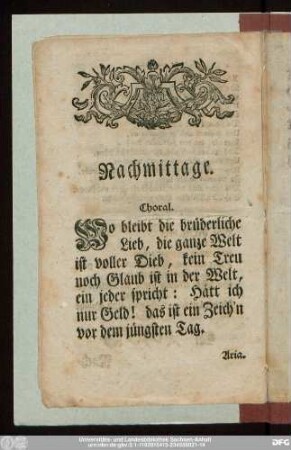 Nachmittage.
Choral.
Wo bleibt die brüderliche
Lieb, die ganze Welt
ist voller Dieb, kein Treu
noch Glaub ist in der Welt,
ein jeder spricht: Hätt ich
nur Geld! das ist ein Zeich'n
vor dem jüngsten Tag.
Aria.
Universitäts- und Landesbibliothek Sachsen-Anhalt
DFG